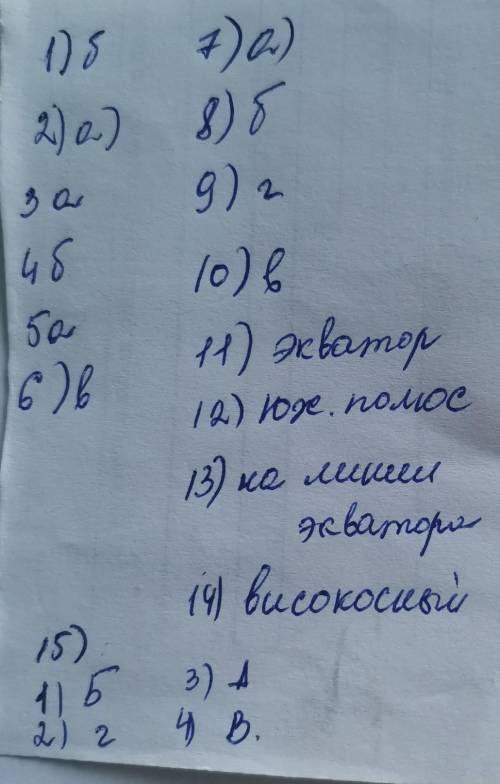 1) б
2) а)
3 а
4 б
5а
6) в
7) а)
8) б
9) г
10) в
11) экватор
12) Юж. полюс
13) на линии
экватора
14) високосный
15)
1) Б
2) г
3) А
4) В.